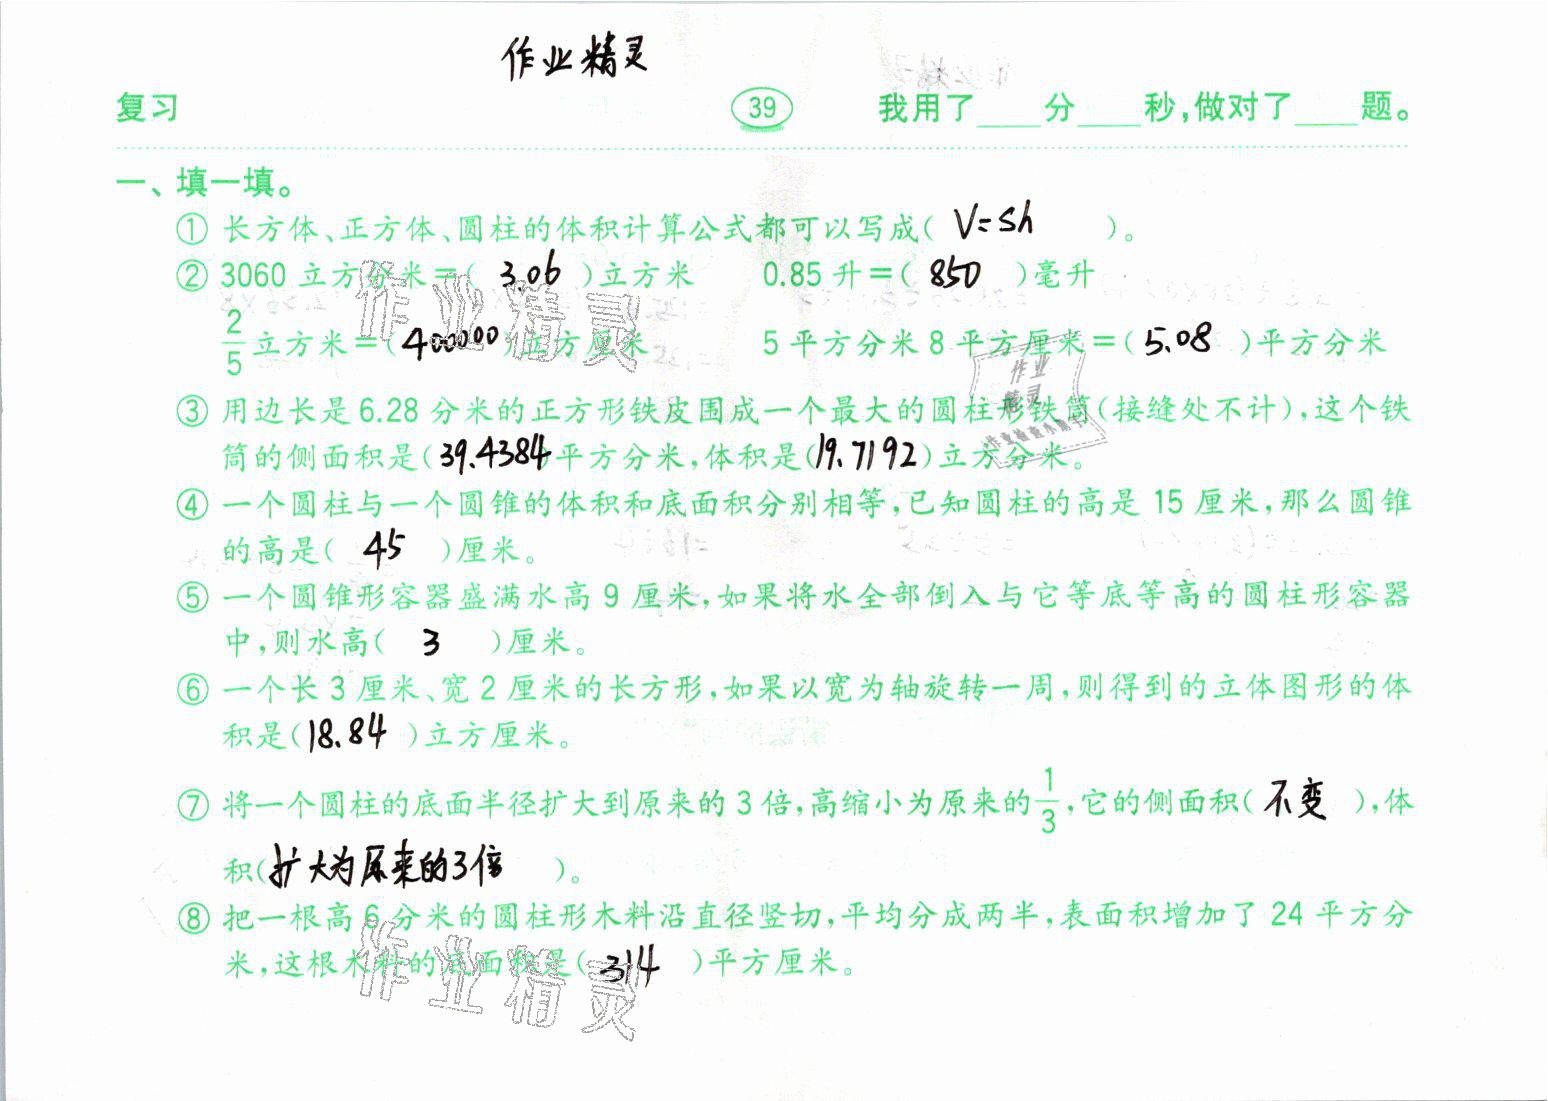 作业精灵
复习 39 我用了____分____秒,做对了____题。
一、填一填。
① 长方体、正方体、圆柱的体积计算公式都可以写成( V=Sh )。
② 3060立方分米=( 3.06 )立方米 0.85升=( 850 )毫升
2/5立方米=( 400000 )立方厘米 5平方分米8平方厘米=( 5.08 )平方分米
③ 用边长是6.28分米的正方形铁皮围成一个最大的圆柱形铁筒(接缝处不计),这个铁
筒的侧面积是(39.4384)平方分米,体积是(19.7192)立方分米。
④ 一个圆柱与一个圆锥的体积和底面积分别相等,已知圆柱的高是15厘米,那么圆锥
的高是( 45 )厘米。
⑤ 一个圆锥形容器盛满水高9厘米,如果将水全部倒入与它等底等高的圆柱形容器
中,则水高( 3 )厘米。
⑥ 一个长3厘米、宽2厘米的长方形,如果以宽为轴旋转一周,则得到的立体图形的体
积是(18.84 )立方厘米。
⑦ 将一个圆柱的底面半径扩大到原来的3倍,高缩小为原来的1/3,它的侧面积( 不变 ),体
积(扩大为原来的3倍 )。
⑧ 把一根高6分米的圆柱形木料沿直径竖切,平均分成两半,表面积增加了24平方分
米,这根木料的底面积是( 314 )平方厘米。
作业精灵
作业精灵
作业精灵